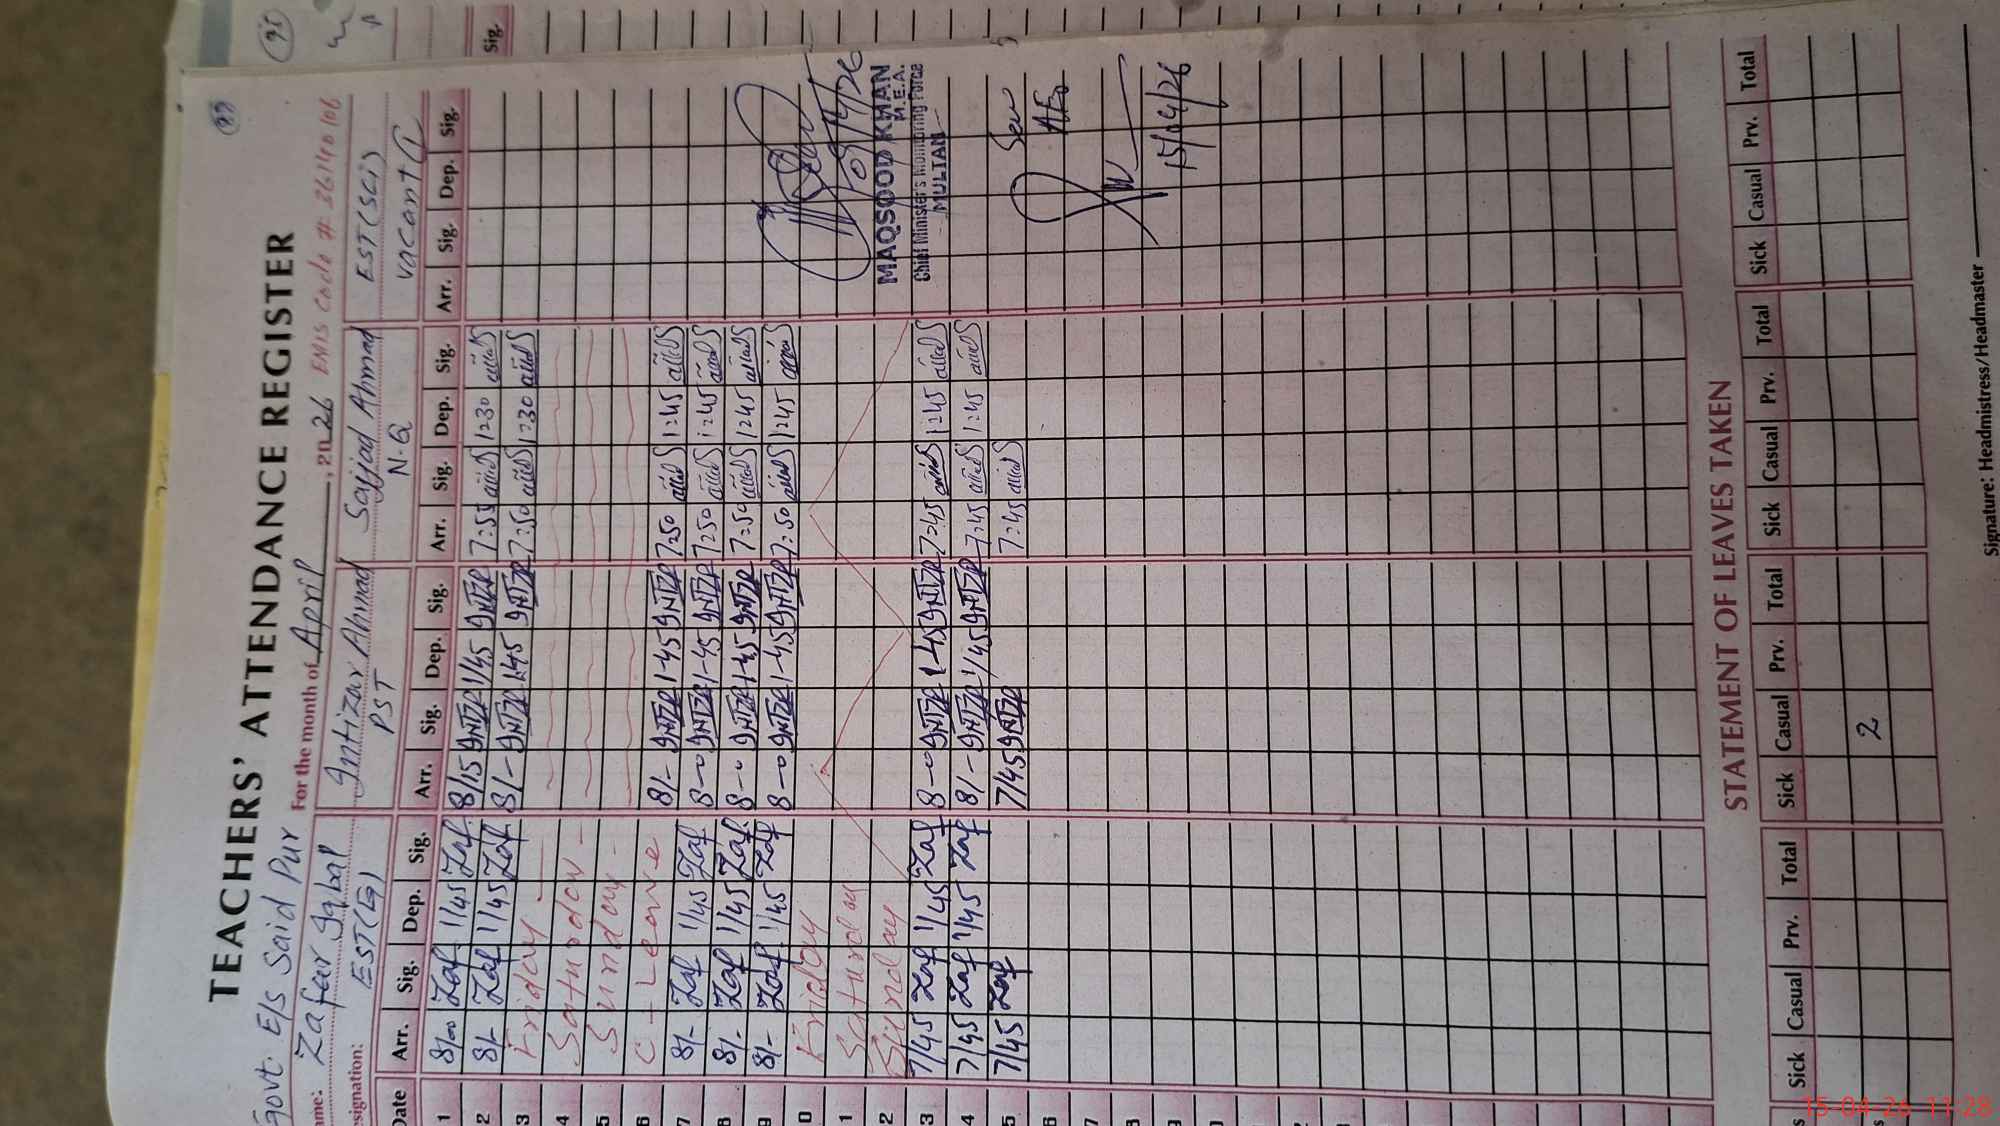 TEACHERS' ATTENDANCE REGISTER
Govt. E/s Said Pur For the month of April, 2026 EMIS Code # 36140106
Name: Zafar Iqbal Intizar Ahmad Sajjad Ahmad EST(Sci)
Designation: EST(G) PST N.Q Vacant
Date Arr. Sig. Dep. Sig. Arr. Sig. Dep. Sig. Arr. Sig. Dep. Sig. Arr. Sig. Dep. Sig.
1 8/00 Zaf 1/45 Zaf 8/15 1/45 7:55 1:30
2 8/- Zaf 1/45 Zaf 8/- 1:45 7:50 1:30
3 Friday
4 Saturday
5 Sunday
6 C-Leave 8/- 1-45 7:50 1:45
7 8/- Zaf 1/45 Zaf 8-0 1-45 7:50 1:45
8 8/- Zaf 1/45 Zaf 8-0 1-45 7:50 1:45
9 8/- Zaf 1/45 Zaf 8-0 1-45 7:50 1:45
0 Friday
1 Saturday
2 Sunday
3 7/45 Zaf 1/45 Zaf 8-0 1-45 7:45 1:45
4 7/45 Zaf 1/45 Zaf 8/- 1/45 7:45 1:45
5 7/45 Zaf 7/45 7:45
6
7
09/4/26
MAQSOOD KHAN
M.E.A.
Chief Minister's Monitoring Force
MULTAN
Seen
AEO
15/04/26
STATEMENT OF LEAVES TAKEN
Sick Casual Prv. Total Sick Casual Prv. Total Sick Casual Prv. Total Sick Casual Prv. Total
2
Signature: Headmistress/Headmaster
Sig.
15-04-26 11:28